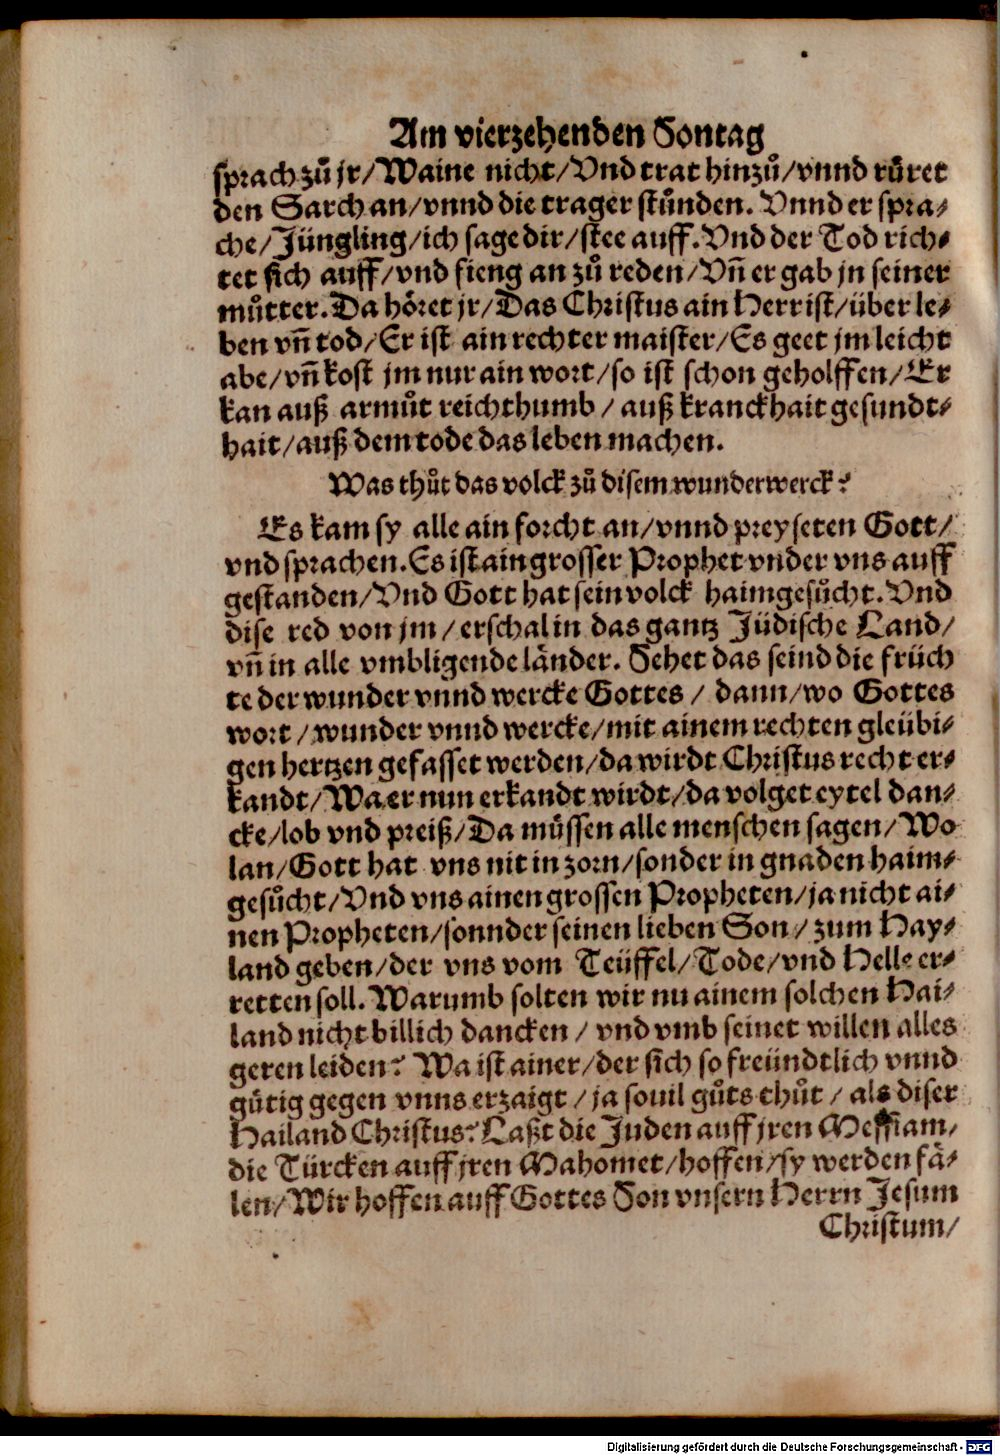 Am vierzehenden Sontag
sprach zů jr/Waine nicht/Vnd trat hinzů/vnnd růret
den Sarch an/vnnd die trager stůnden. Vnnd er spra⸗
che/Jüngling/ich sage dir/stee auff.Vnd der Tod rich⸗
tet sich auff/vnd fieng an zů reden/Vñ er gab jn seiner
můtter.Da höret jr/Das Christus ain Herr ist/über le⸗
ben vñ tod/Er ist ain rechter maister/Es geet jm leicht
abe/vñ kost jm nur ain wort/so ist schon geholffen/Er
kan auß armůt reichthumb / auß kranckhait gesundt⸗
hait/auß dem tode das leben machen.
Was thůt das volck zů disem wunderwerck?
Es kam sy alle ain forcht an/vnnd preyseten Gott/
vnd sprachen.Es ist ain grosser Prophet vnder vns auff
gestanden/Vnd Gott hat sein volck haimgesůcht.Vnd
dise red von jm/erschal in das gantz Jüdische Land/
vñ in alle vmbligende länder. Sehet das seind die früch
te der wunder vnnd wercke Gottes / dann/wo Gottes
wort/wunder vnnd wercke/mit ainem rechten gleübi⸗
gen hertzen gefasset werden/da wirdt Christus recht er⸗
kandt/Wa er nun erkandt wirdt/da volget eytel dan⸗
cke/lob vnd preiß/Da müssen alle menschen sagen/Wo
lan/Gott hat vns nit in zorn/sonder in gnaden haim⸗
gesůcht/Vnd vns ainen grossen Propheten/ja nicht ai⸗
nen Propheten/sonnder seinen lieben Son/zum Hay⸗
land geben/der vns vom Teüffel/Tode/vnd Helle er⸗
retten soll.Warumb solten wir nu ainem solchen Hai⸗
land nicht billich dancken / vnd vmb seinet willen alles
geren leiden? Wa ist ainer/der sich so freündtlich vnnd
gütig gegen vnns erzaigt/ja souil gůts thůt/als diser
Hailand Christus? Laßt die Juden auff jren Messiam/
die Türcken auff jren Mahomet/hoffen/sy werden fä⸗
len/Wir hoffen auff Gottes Son vnsern Herrn Jesum
Christum/
Digitalisierung gefördert durch die Deutsche Forschungsgemeinschaft - DFG